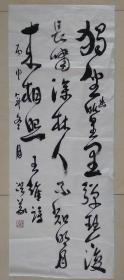 獨坐幽篁里弹琴復
長嘯深林人不知明月
来相照 王維詩
丙申年冬月